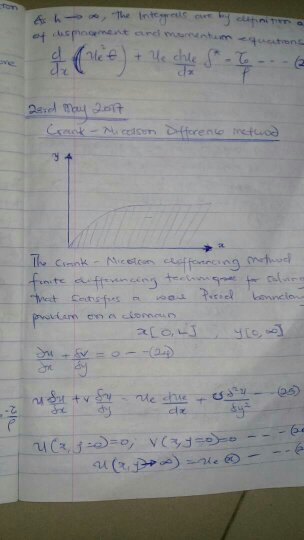 As h → ∞, the integrals are by definition
of displacement and momentum equations
d/dx (ue²θ) + ue due/dx δ* = τo/ρ --- (2
23rd May 2017
Crank - Nicolson Difference method
y
x
The Crank - Nicolson differencing method
finite differencing techniques for solving
that satisfies a
problem on a domain
x[0, L] , y[0, ∞]
∂u/∂x + ∂v/∂y = 0 --- (24)
u ∂u/∂x + v ∂u/∂y = ue due/dx + υ ∂²u/∂y² --- (25)
u(x, y=0) = 0, v(x, y=0) = 0 --- (2
u(x, y→∞) = ue(x) ---